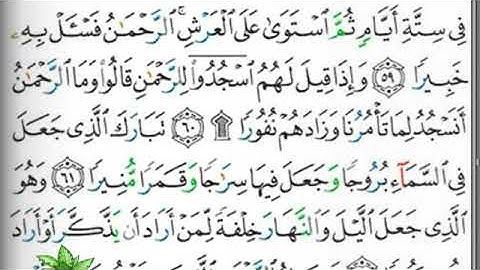 فِى سِتَّةِ أَيَّامٍ ثُمَّ ٱسْتَوَىٰ عَلَى ٱلْعَرْشِ ۚ ٱلرَّحْمَـٰنُ فَسْـَٔلْ بِهِۦ
خَبِيرًا ۝٥٩ وَإِذَا قِيلَ لَهُمُ ٱسْجُدُوا۟ لِلرَّحْمَـٰنِ قَالُوا۟ وَمَا ٱلرَّحْمَـٰنُ
أَنَسْجُدُ لِمَا تَأْمُرُنَا وَزَادَهُمْ نُفُورًا ۩ ۝٦٠ تَبَارَكَ ٱلَّذِى جَعَلَ
فِى ٱلسَّمَآءِ بُرُوجًا وَجَعَلَ فِيهَا سِرَٰجًا وَقَمَرًا مُّنِيرًا ۝٦١ وَهُوَ
ٱلَّذِى جَعَلَ ٱلَّيْلَ وَٱلنَّهَارَ خِلْفَةً لِّمَنْ أَرَادَ أَن يَذَّكَّرَ أَوْ أَرَادَ